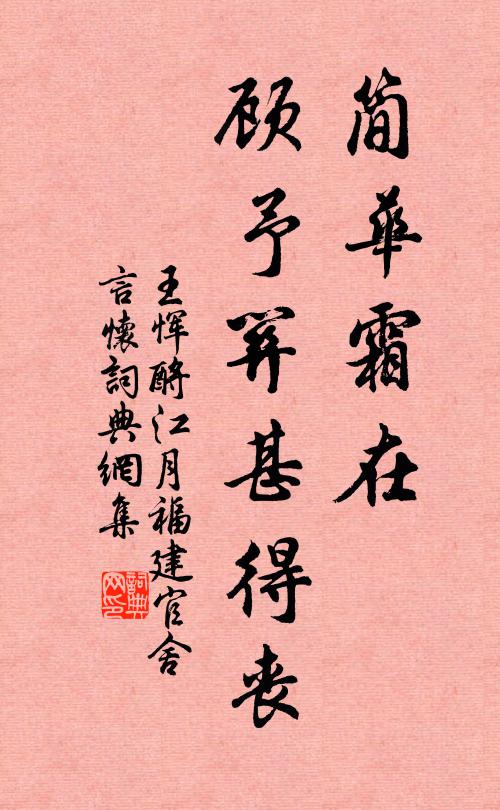 簡華霜在
顧予算甚得喪
王惲酹江月福建官舍
言懷詞典網集
詞典网印